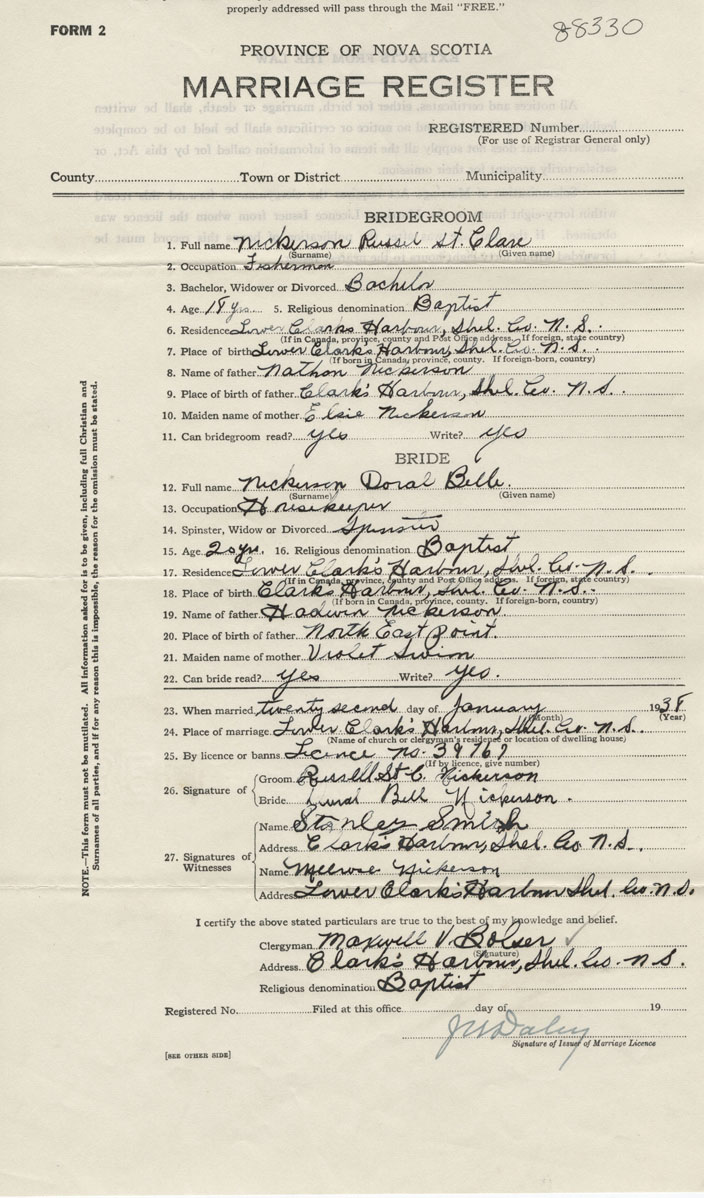 properly addressed will pass through the Mail "FREE."
FORM 2
88330
PROVINCE OF NOVA SCOTIA
MARRIAGE REGISTER
REGISTERED Number
(For use of Registrar General only)
County Town or District Municipality
BRIDEGROOM
1. Full name Nickerson Russel St. Clare
(Surname) (Given name)
2. Occupation Fisherman
3. Bachelor, Widower or Divorced Bachelor
4. Age 18 yrs 5. Religious denomination Baptist
6. Residence Lower Clark's Harbour, Shel. Co. N. S.
(If in Canada, province, county and Post Office address. If foreign, state country)
7. Place of birth Lower Clark's Harbour, Shel. Co. N. S.
(If born in Canada, province, county. If foreign-born, country)
8. Name of father Nathan Nickerson
9. Place of birth of father Clark's Harbour, Shel. Co. N. S.
10. Maiden name of mother Elsie Nickerson
11. Can bridegroom read? yes Write? yes
BRIDE
12. Full name Nickerson Doral Belle.
(Surname) (Given name)
13. Occupation Housekeeper
14. Spinster, Widow or Divorced Spinster
15. Age 20 yrs. 16. Religious denomination Baptist
17. Residence Lower Clark's Harbour, Shel. Co. N. S.
(If in Canada, province, county and Post Office address. If foreign, state country)
18. Place of birth Clark's Harbour, Shel. Co. N. S.
(If born in Canada, province, county. If foreign-born, country)
19. Name of father Hadwin Nickerson
20. Place of birth of father North East Point.
21. Maiden name of mother Violet Swim
22. Can bride read? yes Write? yes.
23. When married twenty second day of January 1938
(Month) (Year)
24. Place of marriage Lower Clark's Harbour, Shel. Co. N. S.
(Name of church or clergyman's residence or location of dwelling house)
25. By licence or banns Licence no. 39767
(If by licence, give number)
26. Signature of Groom Russell St C. Nickerson
Bride Bell Nickerson.
27. Signatures of Witnesses
Name Stanley Smith
Address Clark's Harbour, Shel. Co. N. S.
Name Nickerson
Address Lower Clark's Harbour Shel. Co. N. S.
I certify the above stated particulars are true to the best of my knowledge and belief.
Clergyman Maxwell V. Bolser
(Signature)
Address Clark's Harbour, Shel. Co. N S.
Religious denomination Baptist
Registered No. Filed at this office day of 19
Daley
Signature of Issuer of Marriage Licence
[SEE OTHER SIDE]
NOTE.—This form must not be mutilated. All information asked for is to be given, including full Christian and
Surnames of all parties, and if for any reason this is impossible, the reason for the omission must be stated.